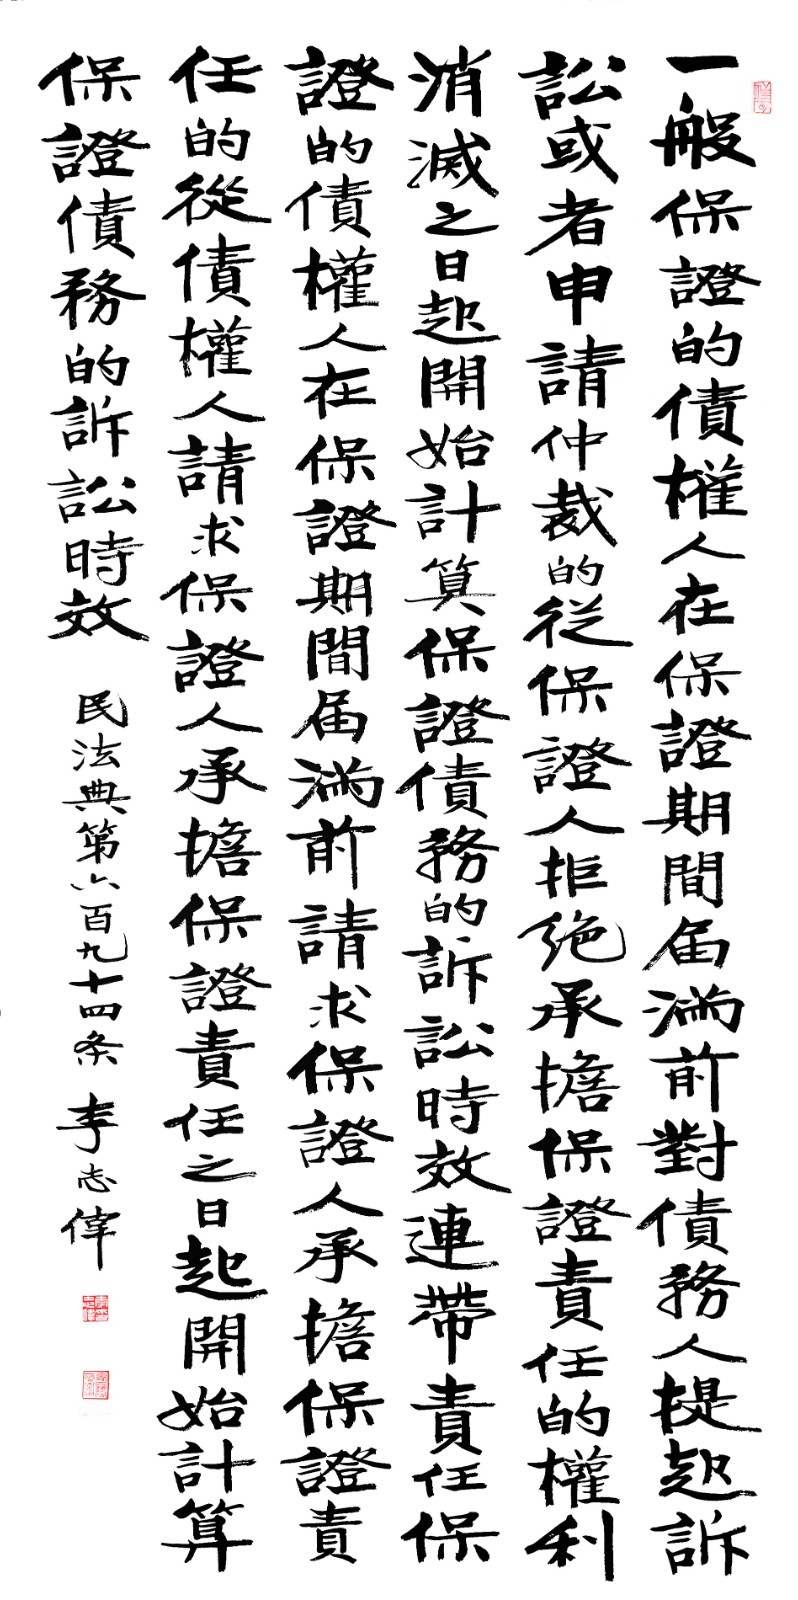 一般保證的債權人在保證期間届滿前對債務人提起訴
訟或者申請仲裁的從保證人拒绝承擔保證責任的權利
消滅之日起開始計算保證債務的訴訟時效連帶責任保
證的債權人在保證期間届滿前請求保證人承擔保證責
任的從債權人請求保證人承擔保證責任之日起開始計算
保證債務的訴訟時效
民法典第六百九十四条 李志偉